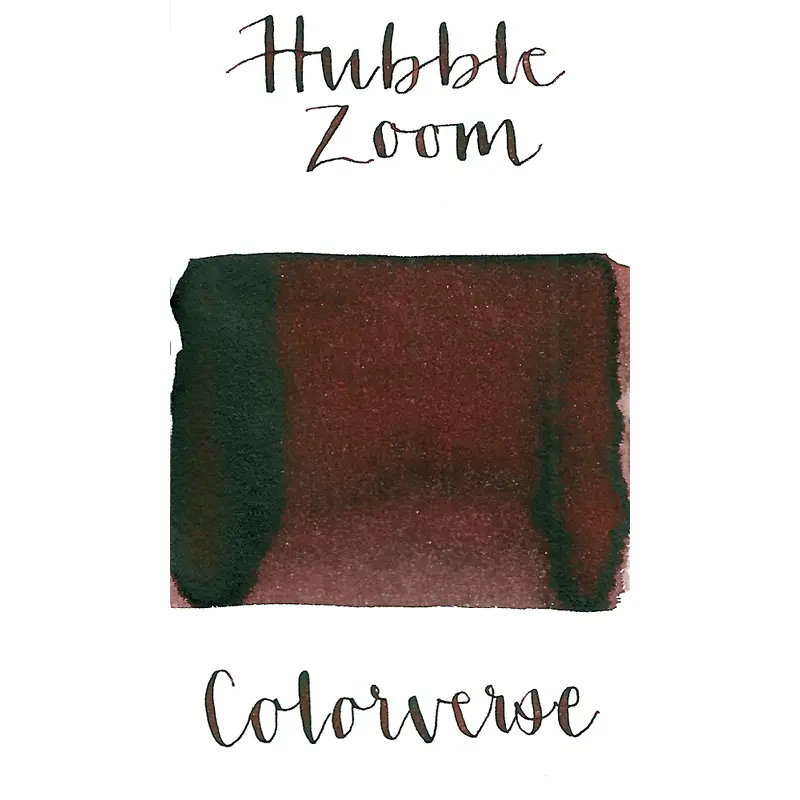 Hubble
Zoom
Colorverse